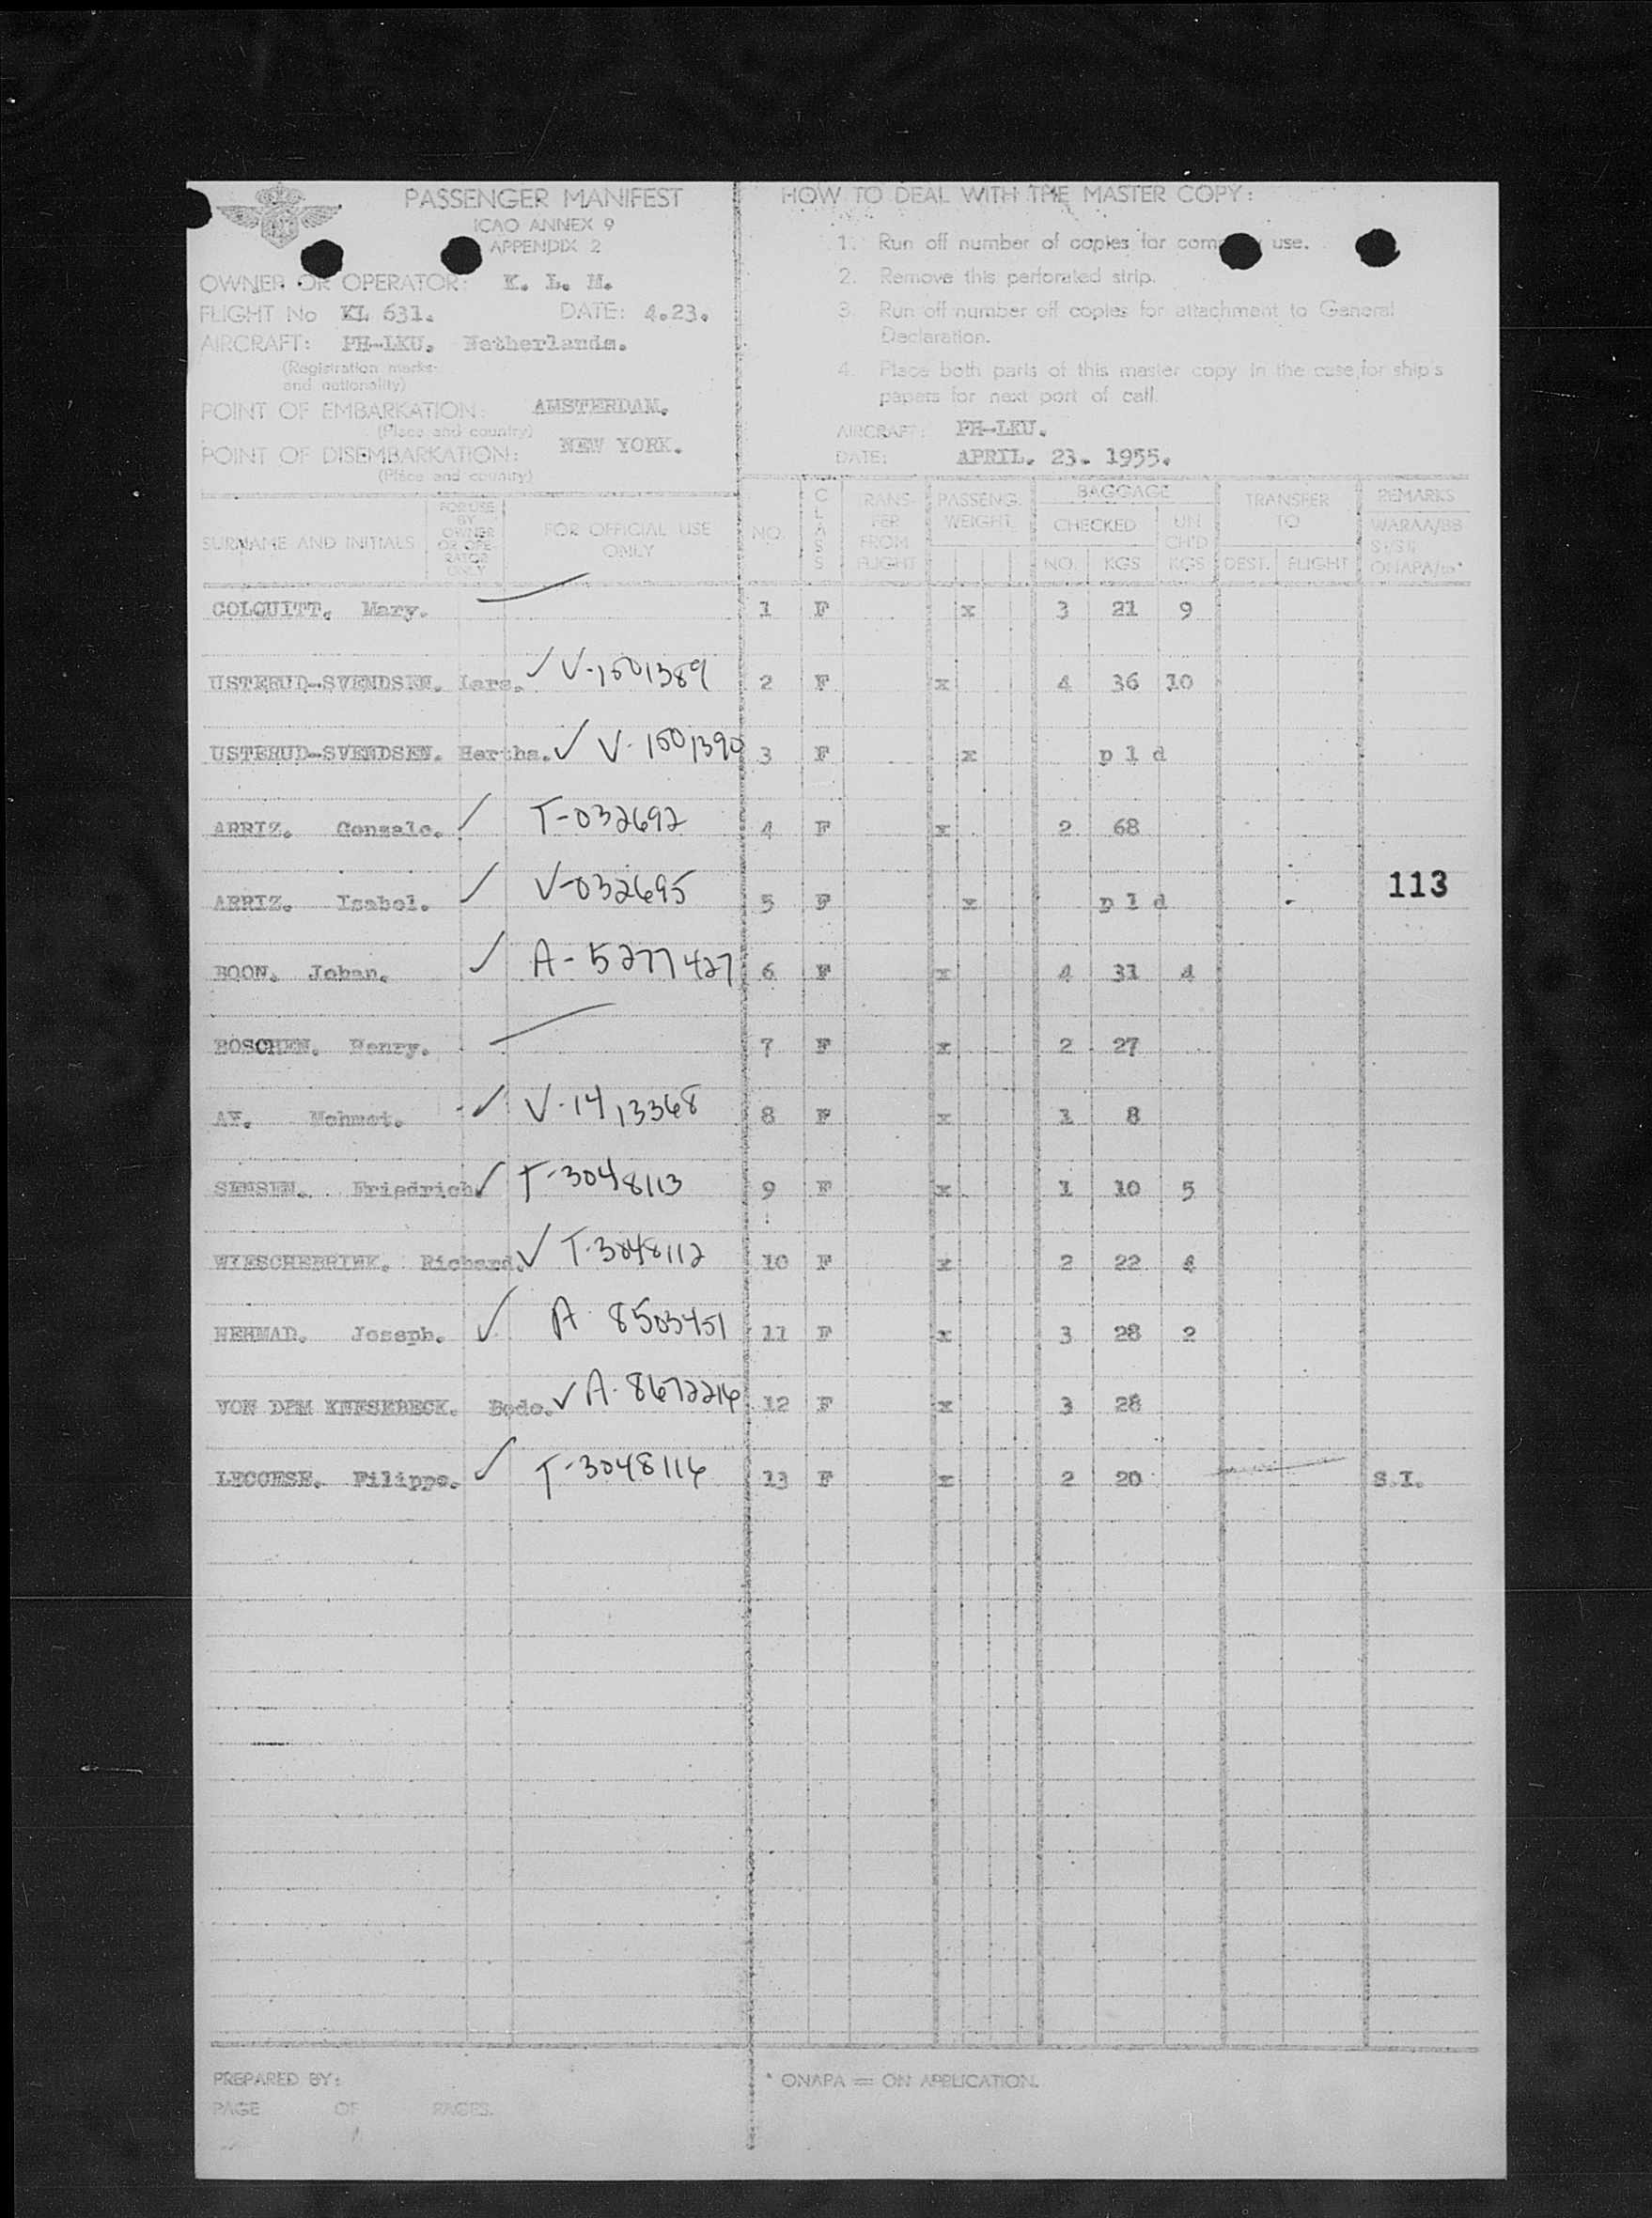 PASSENGER MANIFEST
ICAO ANNEX 9
APPENDIX 2
OWNER OR OPERATOR: K. L. M.
FLIGHT No KL 631. DATE: 4.23.
AIRCRAFT: PH-LKU. Netherlands.
(Registration marks
and nationality)
POINT OF EMBARKATION: AMSTERDAM.
(Place and country)
POINT OF DISEMBARKATION: NEW YORK.
(Place and country)
HOW TO DEAL WITH THE MASTER COPY:
1. Run off number of copies for use.
2. Remove this perforated strip.
3. Run off number off copies for attachment to General
Declaration.
4. Place both parts of this master copy in the case for ship's
papers for next port of call.
AIRCRAFT: PH-LKU.
DATE: APRIL. 23. 1955.
SURNAME AND INITIALS FOR USE BY OWNER OR OPE-RATOR ONLY FOR OFFICIAL USE ONLY NO. CLASS TRANS FER FROM FLIGHT PASSENG. WEIGHT BAGGAGE CHECKED NO. KGS UN CH'D KGS TRANSFER TO DEST. FLIGHT REMARKS WARAA/BB ONAPA/to*
COLQUITT. Mary. 1 F x 3 21 9
USTERUD-SVENDSEN. Lars. ✓ V-1501389 2 F x 4 36 10
USTERUD-SVENDSEN. Hertha. ✓ V-1501390 3 F x p l d
ARRIZ. Gonzalo. ✓ T-032692 4 F x 2 68
ARRIZ. Isabel. ✓ V-032695 5 F x p l d
113
BOON. Johan. ✓ A-5277427 6 F x 4 31 4
BOSCHEN. Henry. 7 F x 2 27
AY. Mehmet. ✓ V-1413368 8 F x 1 8
SENSEN. Friedrich ✓ T-3048113 9 F x 1 10 5
WIESCHEBRINK. Richard. ✓ T-3048112 10 F x 2 22 4
NEHMAD. Joseph. ✓ A-8503451 11 F x 3 28 2
VON DEM KNESEBECK. Bodo. ✓ A-8672216 12 F x 3 28
LECCESE. Filippo. ✓ T-3048116 13 F x 2 20 S.I.
PREPARED BY:
PAGE OF PAGES.
* ONAPA = ON APPLICATION.